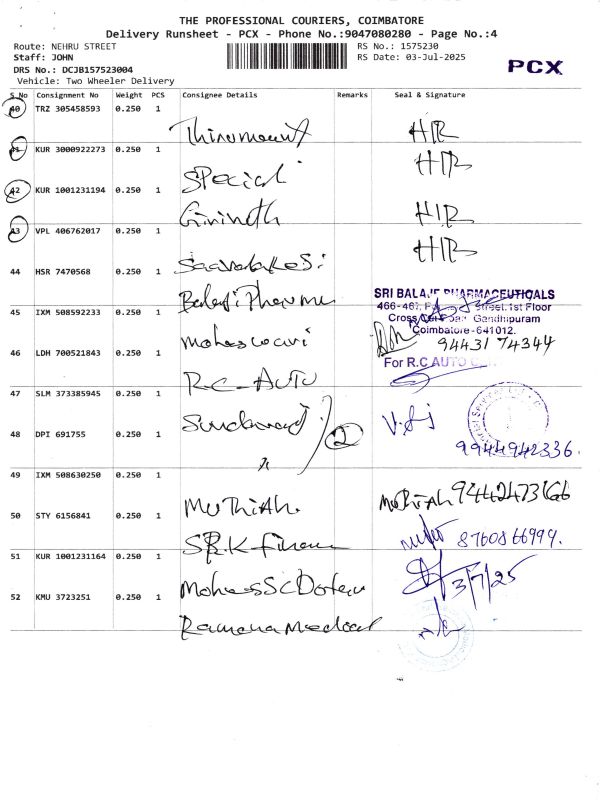 THE PROFESSIONAL COURIERS, COIMBATORE
Delivery Runsheet - PCX - Phone No.:9047080280 - Page No.:4
Route: NEHRU STREET
RS No.: 1575230
Staff: JOHN
RS Date: 03-Jul-2025
DRS No.: DCJB157523004
PCX
Vehicle: Two Wheeler Delivery
S.No Consignment No Weight PCS Consignee Details Remarks Seal & Signature
40 TRZ 305458593 0.250 1
HR
41 KUR 3000922273 0.250 1
Special HR
42 KUR 1001231194 0.250 1
HR
43 VPL 406762017 0.250 1
HR
44 HSR 7470568 0.250 1
Balaji Pharma
SRI BALAJE PHARMACEUTICALS
466-467, Street, 1st Floor
Cross Gandhipuram
Coimbatore-641012.
45 IXM 508592233 0.250 1
Maheswari 94431 74344
46 LDH 700521843 0.250 1
R.C-AUTO
For R.C AUTO
47 SLM 373385945 0.250 1
48 DPI 691755 0.250 1
2
9944942336.
49 IXM 508630250 0.250 1
Muthiah. Muthiah 9442473166
50 STY 6156841 0.250 1
S.R.K-Finance 8760866999.
51 KUR 1001231164 0.250 1
3/7/25
52 KMU 3723251 0.250 1
Ramana Medical